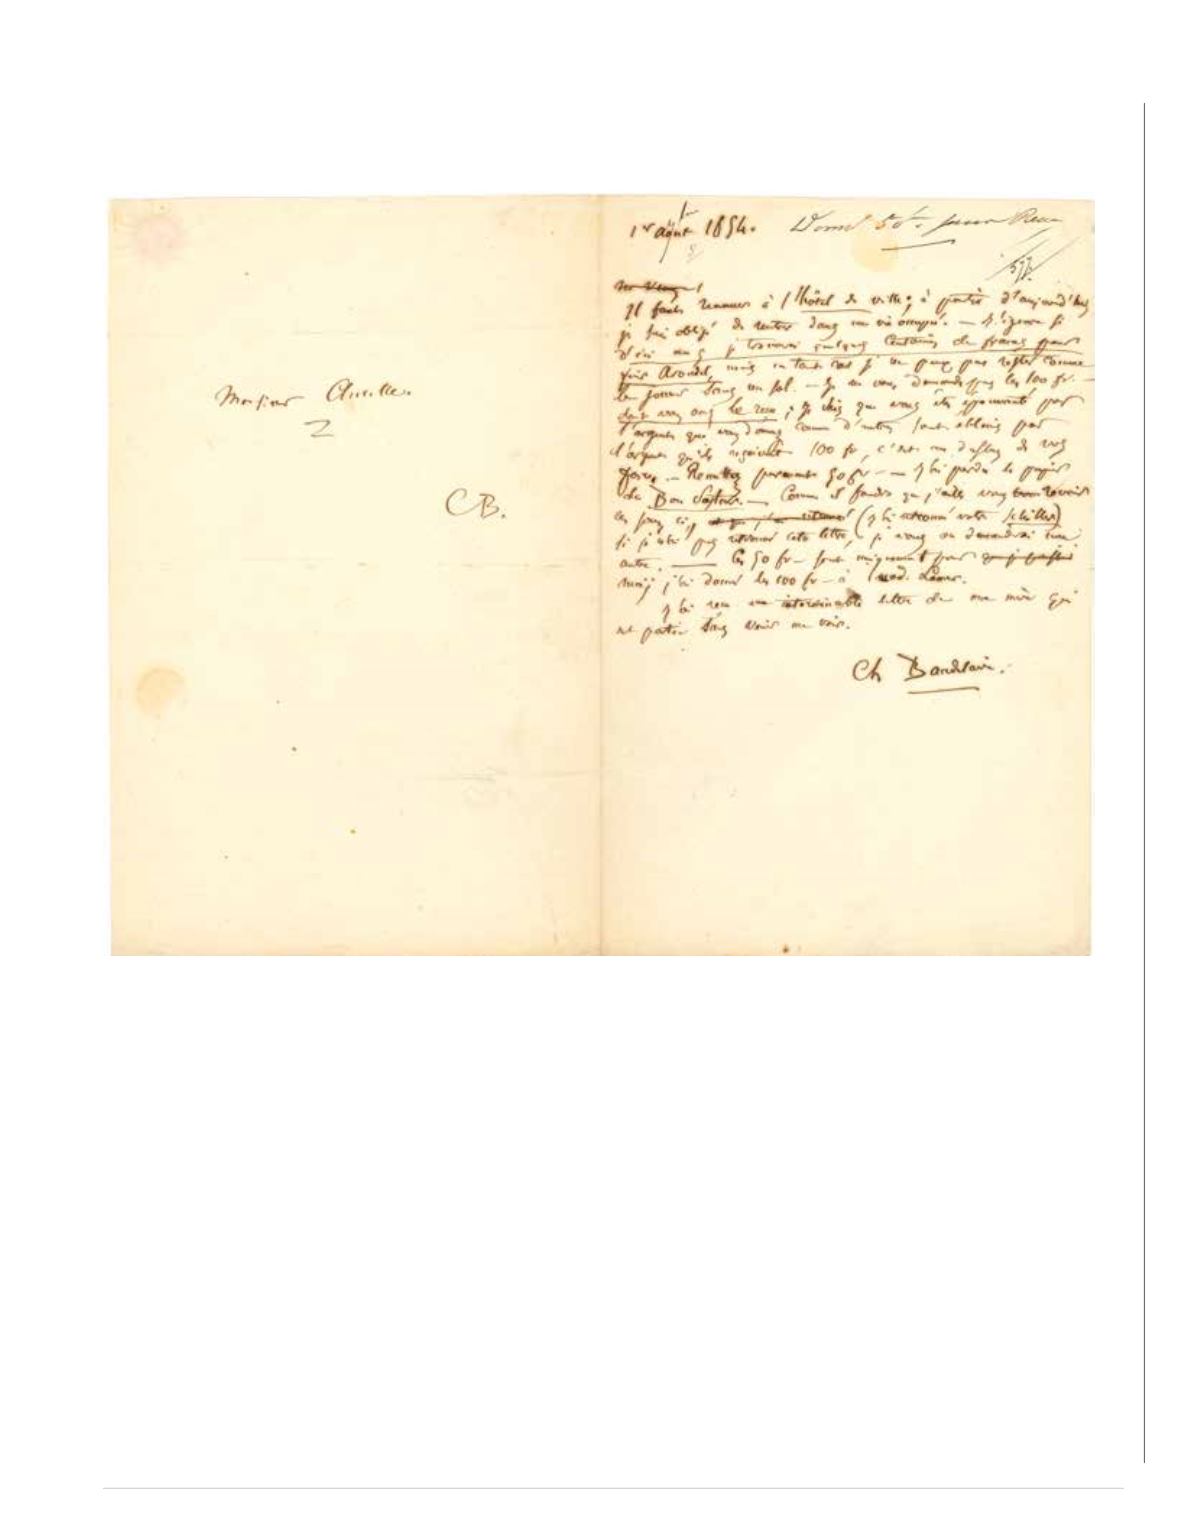 Monsieur
CB.
1er août 1854. Donné 50 f. sans Reçu
Il faut renoncer à l'Hôtel de ville; à partir d'aujourd'hui
je suis obligé de rentrer dans ma vie occupée. — J'ignore si
d'ici je trouverai quelques centaines de francs pour
Arondel, mais en tout cas je ne peux pas rester comme
jours sans un sol. — Je ne vous demande pas les 100 fr. —
dont vous avez le reçu; je sais que vous êtes épouvanté par
l'argent que vous donnez comme d'autres sont éblouis par
l'argent qu'ils reçoivent. 100 fr, c'est au dessus de vos
forces. — Remettez 50 fr — — J'ai perdu le papier
du Bon Sauveur. — Comme il faudra que j'aille vous revoir
ces jours ci, (j'ai retrouvé votre Schiller)
si je n'ai pas retrouvé cette lettre, je vous en demanderai une
autre. — Les 50 fr — sont uniquement pour
moi; j'ai donné les 100 fr — à mad.
J'ai reçu une interminable lettre de ma mère qui
va partir sans vouloir me voir.
Ch Baudelaire.